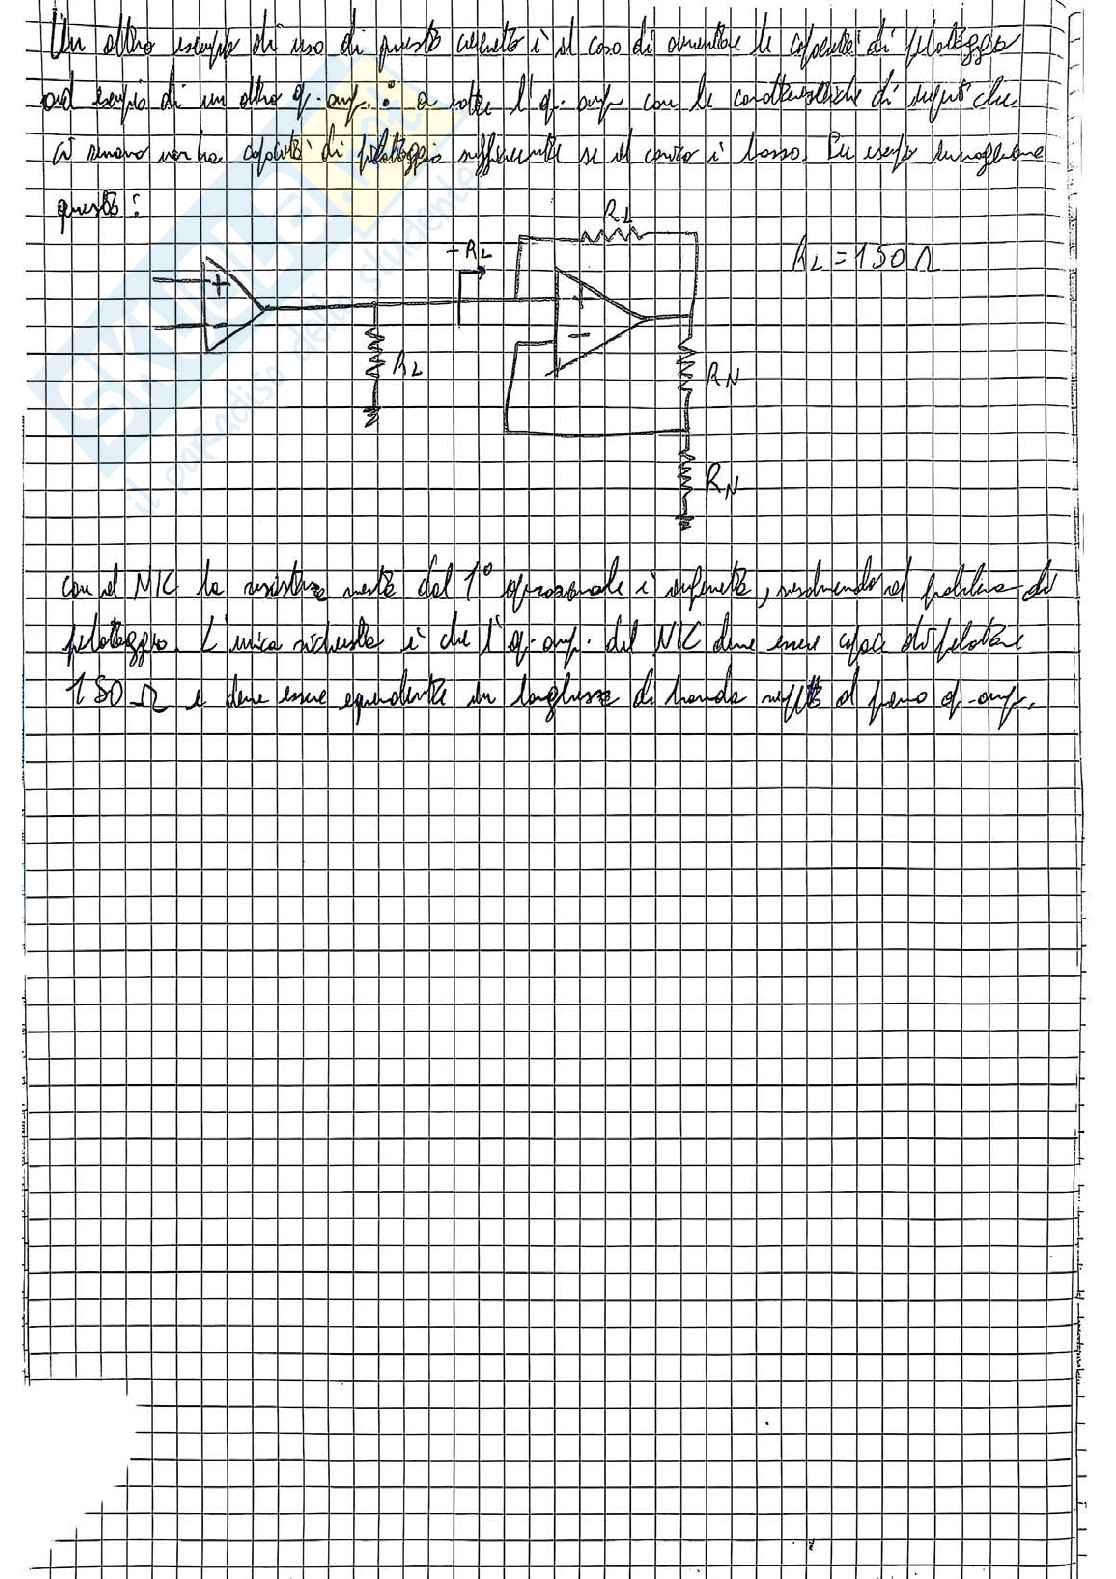 Un altro esempio di uso di questo circuito è il caso di aumentare le capacità di pilotaggio
ad esempio di un altro op-amp.: a volte l'op-amp con le caratteristiche di segnale che
ci servono non ha capacità di pilotaggio sufficiente se il carico è basso. Per esempio
questo:
RL
-RL
RL = 150 Ω
+
-
RL
+
-
RN
RN
con il NIC la resistenza vista dal 1° operazionale è infinita, risolvendo il problema di
pilotaggio. L'unica richiesta è che l'op-amp. del NIC deve essere capace di pilotare
150 Ω e deve essere equivalente in larghezza di banda rispetto al primo op-amp.
SKUOLA.net
il paradiso dello studente